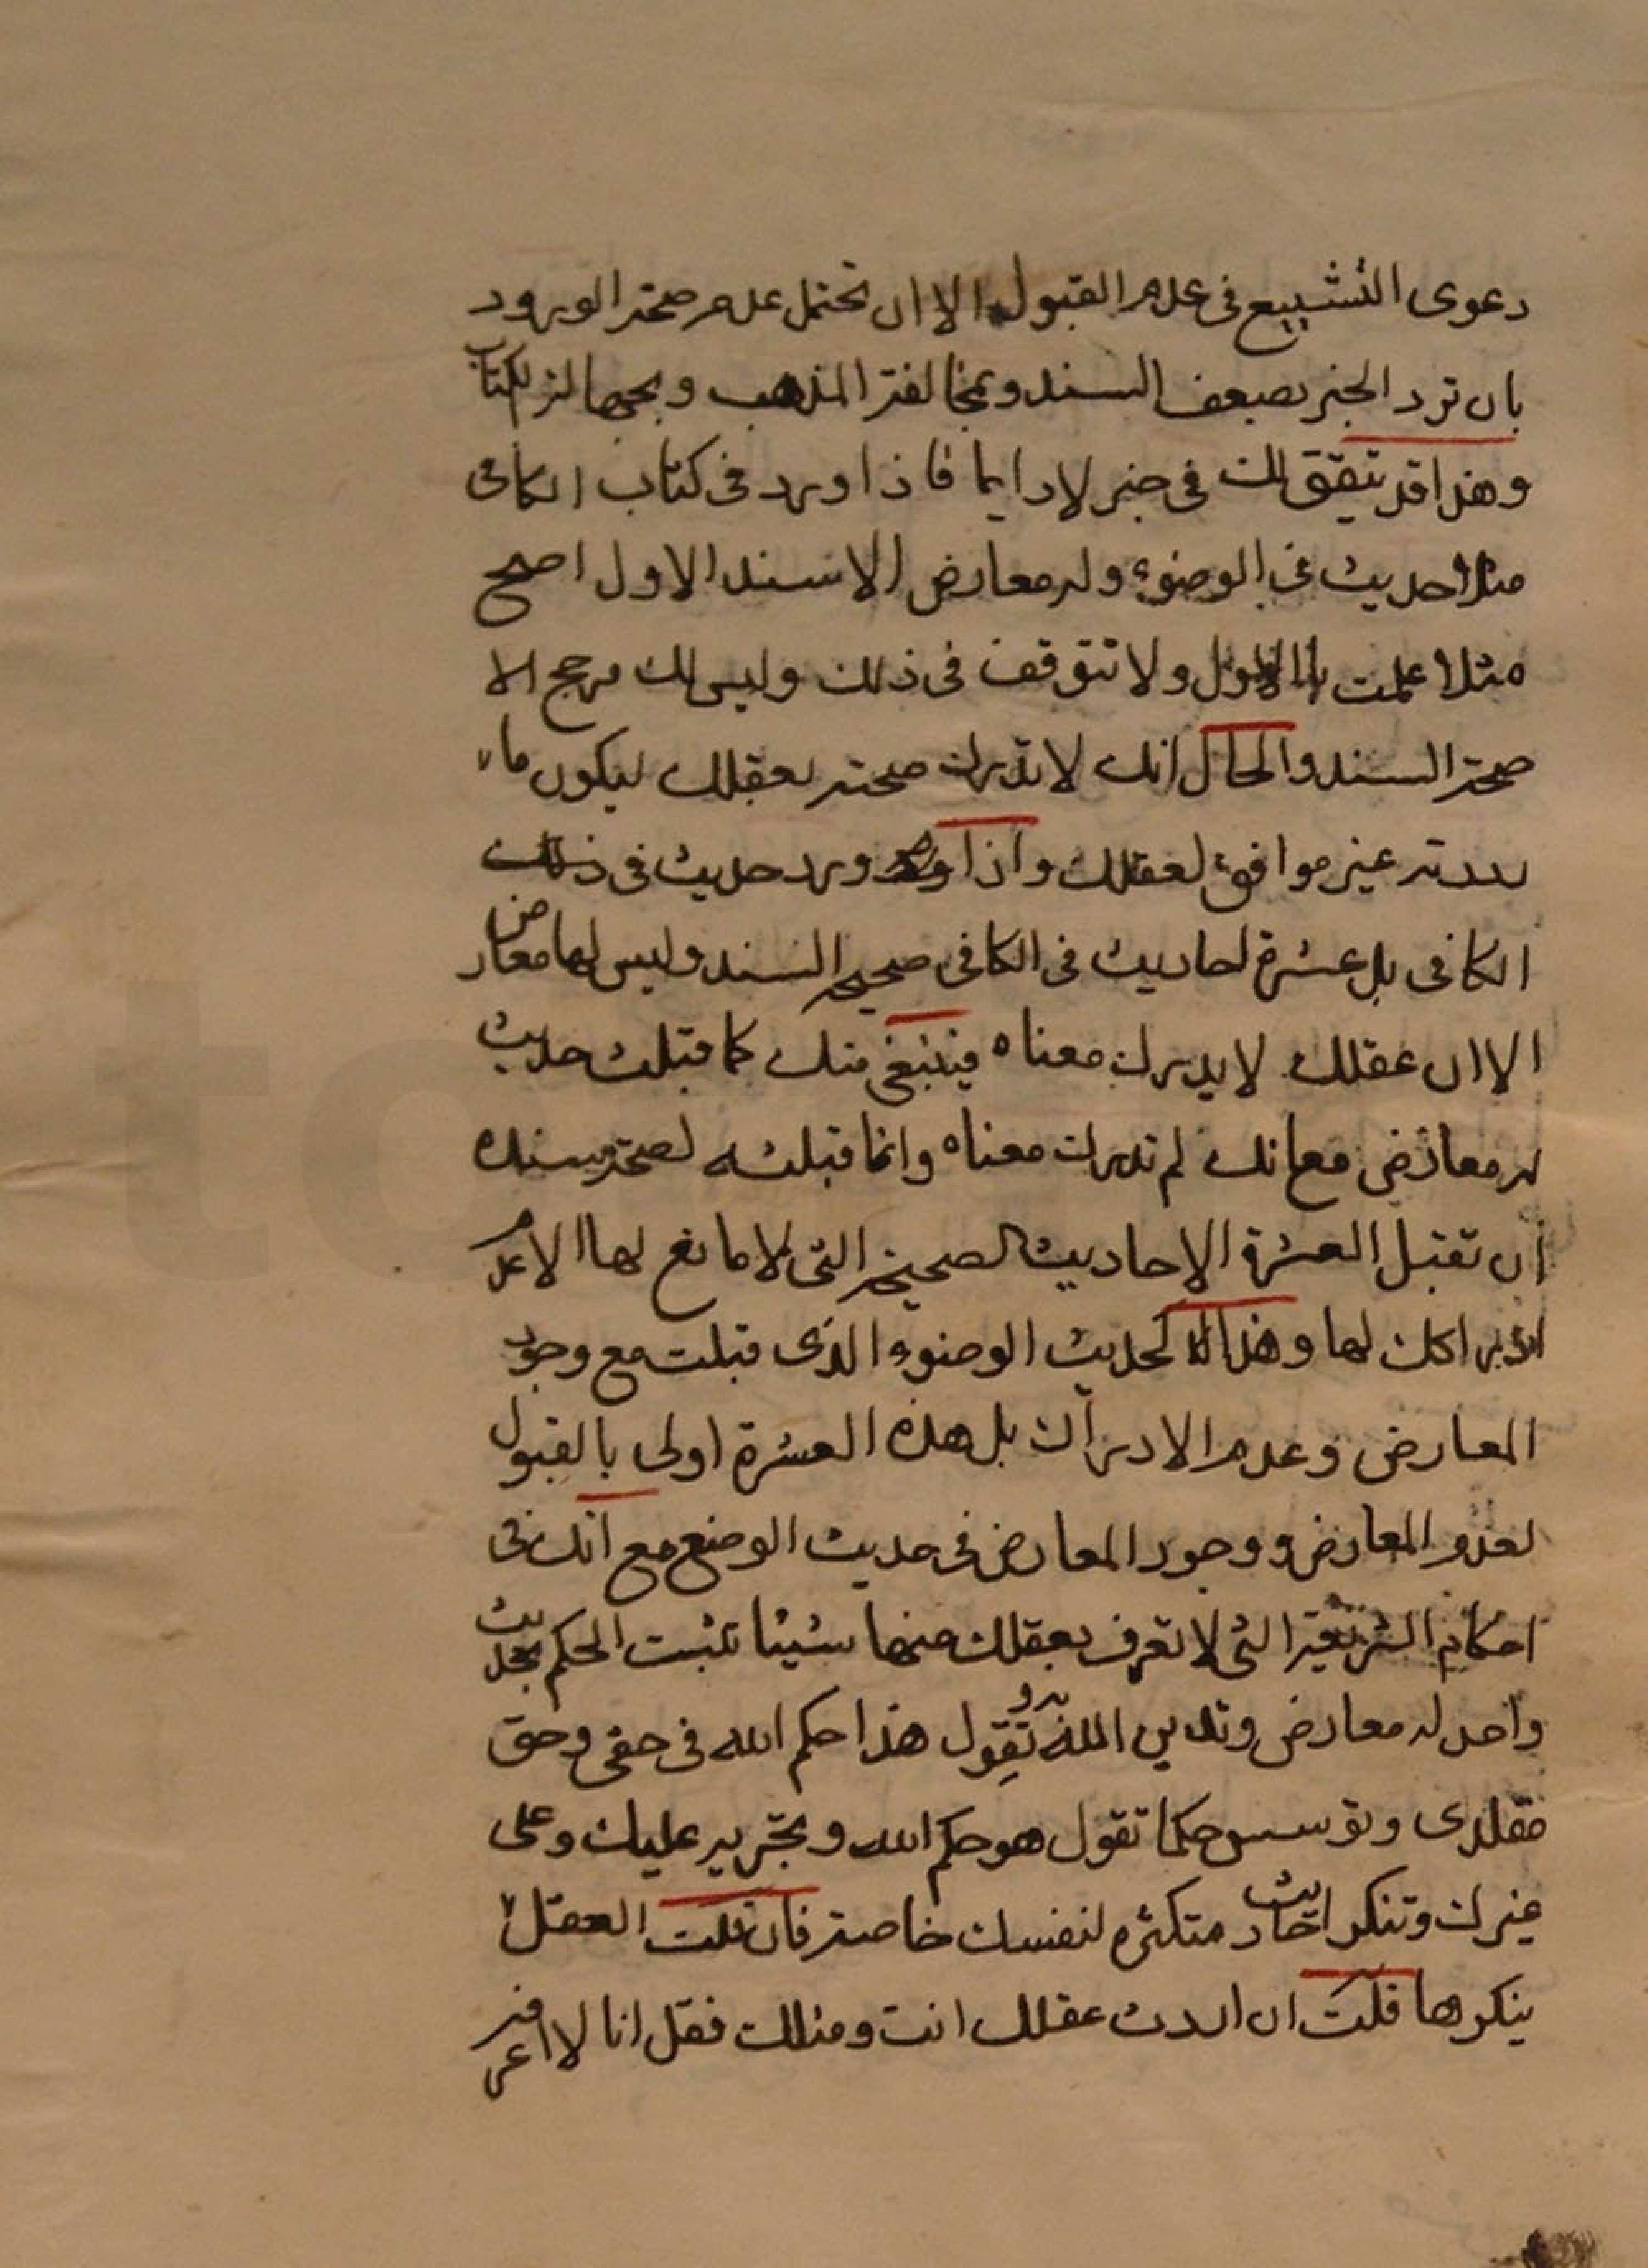 دعوى التشييع فى عدم القبول الا ان تحتمل عدم صحة الورود
بان ترد الخبر بضعف السند و بمخالفة المذهب و بجهالة الكتاب
و هذا قد يتفق لك فى خبر لا دايما فاذا ورد فى كتاب الكافى
مثلا حديث فى الوضوء وله معارض الا سند الاول اصح
مثلا عملت بالاول ولا تتوقف فى ذلك وليس لك مرجح الا
صحة السند والحال انك لا تدرك صحته بعقلك ليكون ما
رددته غير موافق لعقلك واذا ورد حديث فى ذلك
الكافى بل عشرة احاديث فى الكافى صحيحة السند وليس لها معارض
الا ان عقلك لا يدرك معناه فينبغى منك كما قبلت حديث
له معارض مع انك لم تدرك معناه وانما قبلته لصحة سنده
ان تقبل العشرة الاحاديث الصحيحة التى لا مانع لها الا عدم
ادراكك لها وهذا كحديث الوضوء الذى قبلت مع وجود
المعارض وعدم الادراك بل هذه العشرة اولى بالقبول
لعدم المعارض و وجود المعارض فى حديث الوضع مع انك فى
احكام الشريعة التى لا تعرف بعقلك منها شيئا تثبت الحكم بحديث
واحد له معارض وتدين الله به و تقول هذا حكم الله فى حقى وحق
مقلدى وتؤسس حكما تقول هو حكم الله و تجريه عليك وعلى
غيرك وتنكر احاديث متكثره لنفسك خاصة فان قلت العقل
ينكرها قلت ان اردت عقلك انت ومثلك فقل انا لا اعرف